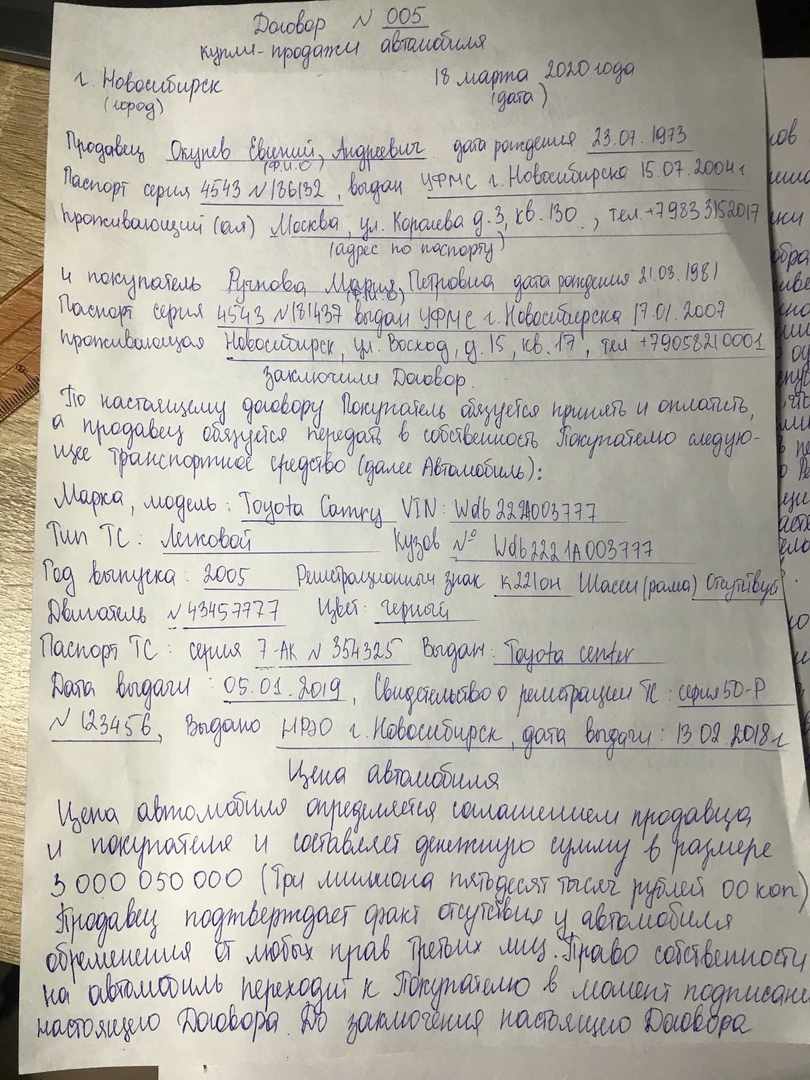 Договор N 005
купли-продажи автомобиля
г. Новосибирск 18 марта 2020 года
(город) (дата)
Продавец Окунев Евгений Андреевич дата рождения 23.07.1973
(Ф.И.О)
Паспорт серия 4543 N 186132, выдан УФМС г. Новосибирска 15.07.2004г
проживающий (ая) Москва, ул. Королева д. 3, кв. 130, тел. +79833152017
(адрес по паспорту)
и покупатель Мария Петровна дата рождения 21.03.1981
(Ф.И.О)
Паспорт серия 4543 N 181437 выдан УФМС г. Новосибирска 17.01.2007
проживающая Новосибирск, ул. Восход, д. 15, кв. 17, тел +79058210001
заключили Договор.
По настоящему договору Покупатель обязуется принять и оплатить,
а продавец обязуется передать в собственность Покупателю следую-
щее транспортное средство (далее Автомобиль):
Марка, модель: Toyota Camry VIN: Wdb222A003777
Тип ТС: Легковой Кузов № Wdb2221A003777
Год выпуска: 2005 Регистрационный знак к221он Шасси (рама) Отсутствует
Двигатель N 43457777 Цвет: черный
Паспорт ТС: серия 7-АК N 354325 Выдан: Toyota center
Дата выдачи: 05.01.2019, Свидетельство о регистрации ТС: серия 50-Р
N 123456, Выдано НРЭО г. Новосибирск, дата выдачи: 13.02.2018г
Цена автомобиля
Цена автомобиля определяется соглашением продавца
и покупателя и составляет денежную сумму в размере
3 000 050 000 (Три миллиона пятьдесят тысяч рублей 00 коп)
Продавец подтверждает факт отсутствия у автомобиля
обременения от любых прав третьих лиц. Право собственности
на автомобиль переходит к Покупателю в момент
настоящего Договора. До заключения настоящего Договора